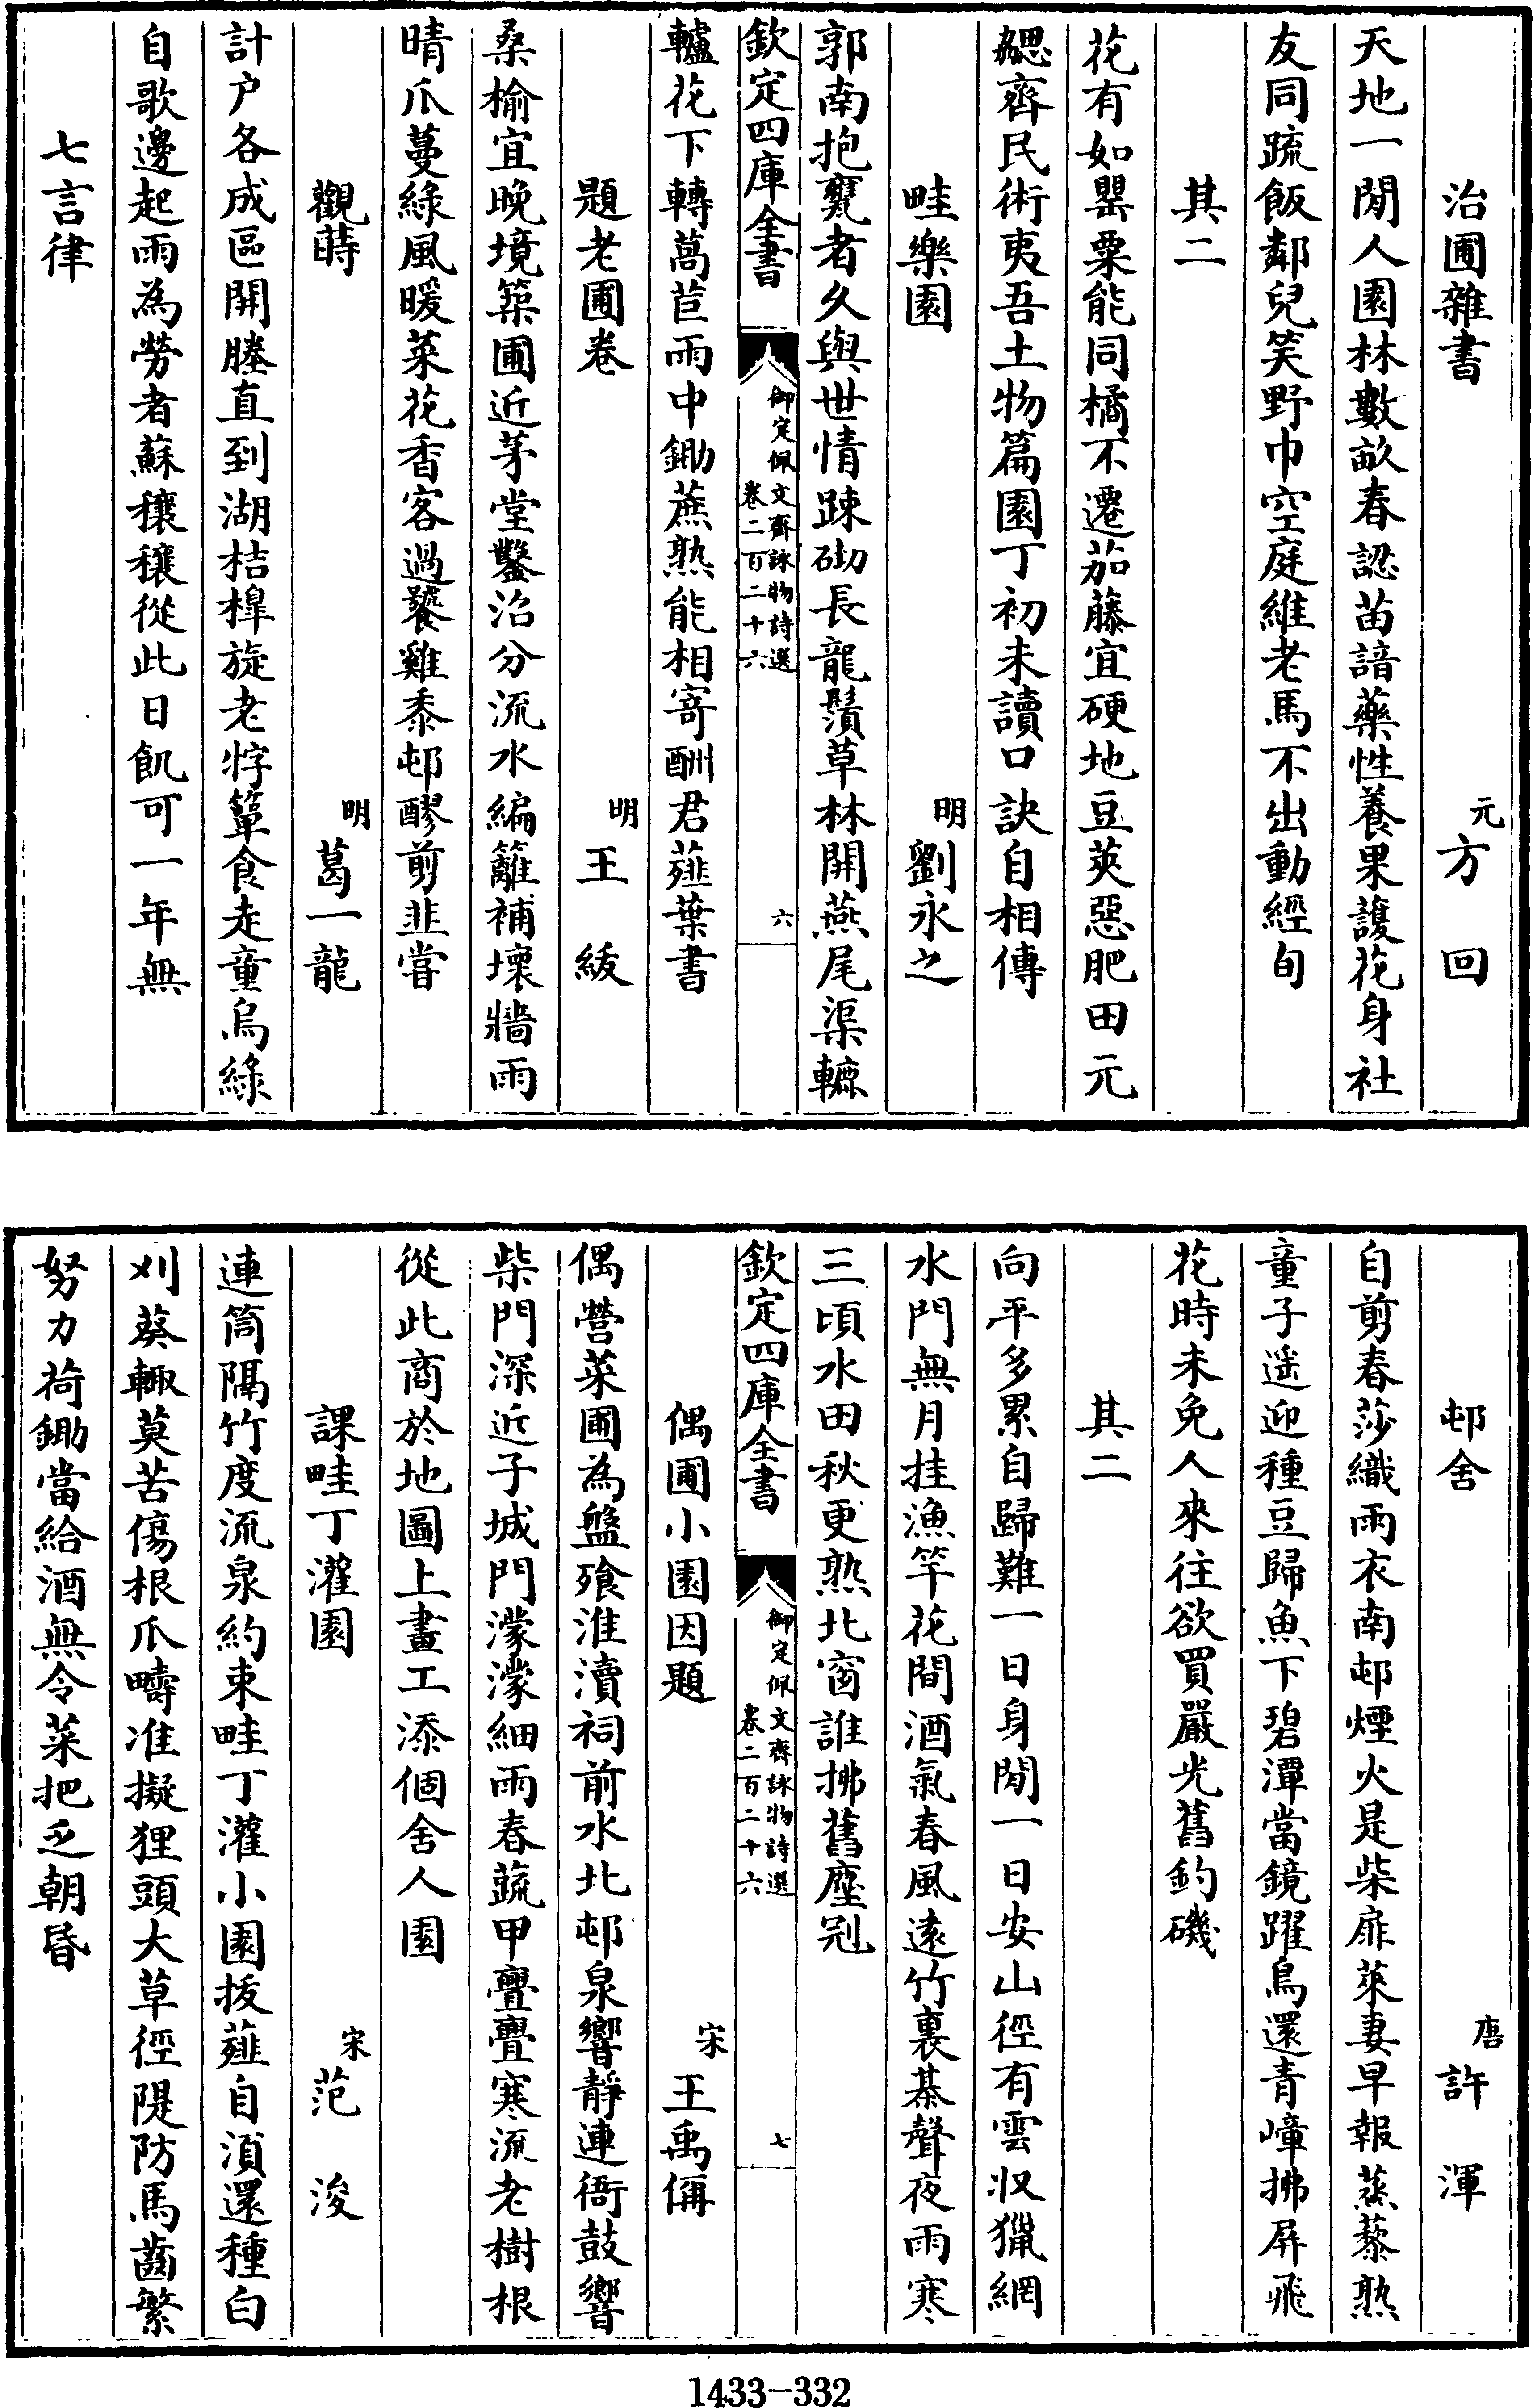 治圃雜書　元方回
天地一閒人園林數畝春認苗諳藥性養果護花身社
友同蔬飯鄰兒笑野巾空庭維老馬不出動經旬
其二
花有如罌粟能同橘不遷茄藤宜硬地豆莢惡肥田元
勰齊民術夷吾土物篇園丁初未讀口訣自相傳
畦樂園　明劉永之
郭南抱甕者久與世情踈砌長龍鬚草林開燕尾渠轆
欽定四庫全書　御定佩文齋詠物詩選　卷二百二十六　六
轤花下轉萵苣雨中鋤蔗熟能相寄酬君薤葉書
題老圃卷　明王紱
桑榆宜晚境築圃近茅堂鑿沼分流水編籬補壞牆雨
晴瓜蔓綠風暖菜花香客過饔雞黍邨醪剪韭嘗
觀蒔　明葛一龍
計户各成區開塍直到湖桔槔旋老牸簞食走童烏綠
自歌邊起雨為勞者蘇穰穰從此日飢可一年無
七言律
邨舍　唐許渾
自剪春莎織雨衣南邨煙火是柴扉萊妻早報蒸藜熟
童子遥迎種豆歸魚下碧潭當鏡躍鳥還青嶂拂屏飛
花時未免人來往欲買嚴光舊釣磯
其二
向平多累自歸難一日身閒一日安山徑有雲収獵網
水門無月挂漁竿花間酒氣春風遠竹裏棊聲夜雨寒
三頃水田秋更熟北窗誰拂舊塵冠
欽定四庫全書　御定佩文齋詠物詩選　卷二百二十六　七
偶圃小園因題　宋王禹偁
偶營菜圃為盤飱淮瀆祠前水北邨泉響靜連衙鼓響
柴門深近子城門濛濛細雨春蔬甲亹亹寒流老樹根
從此商於地圖上畫工添個舍人園
課畦丁灌園　宋范浚
連筒隔竹度流泉約束畦丁灌小園拔薤自湏還種白
刈葵輙莫苦傷根爪疇准擬狸頭大草徑隄防馬齒繁
努力荷鋤當給酒無令菜把乏朝昏
1433-332